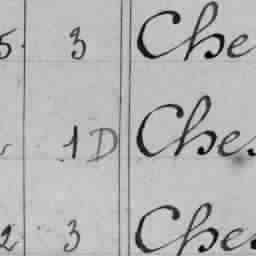 5 3 Che
1D Ches
2 3 Ches